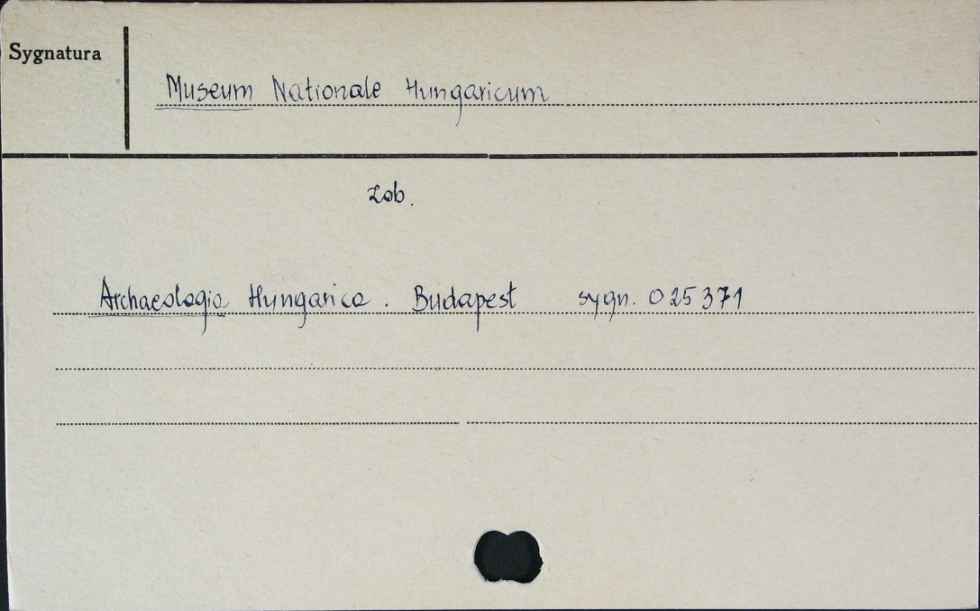 Sygnatura
Museum Nationale Hungaricum
zob.
Archaeologia Hungarica. Budapest sygn. 025371